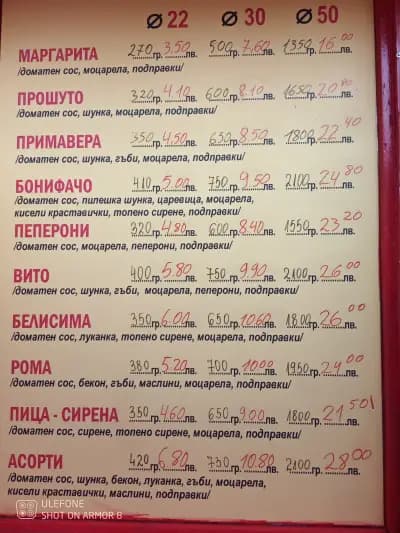 ⌀ 22 ⌀ 30 ⌀ 50
МАРГАРИТА 270 гр. 3,50 лв. 500 гр. 7,60 лв. 1350 гр. 16.00 лв.
/доматен сос, моцарела, подправки/
ПРОШУТО 320 гр. 4.10 лв. 600 гр. 8.10 лв. 1650 гр. лв.
/доматен сос, шунка, моцарела, подправки/
ПРИМАВЕРА 350 гр. 4,50 лв. 650 гр. 8.50 лв. 1800 гр. 22 40 лв.
/доматен сос, шунка, гъби, моцарела, подправки/
БОНИФАЧО 410 гр. 5.00 лв. 750 гр. 9,50 лв. 2100 гр. 24 80 лв.
/доматен сос, пилешка шунка, царевица, моцарела,
кисели краставички, топено сирене, подправки/
ПЕПЕРОНИ 320 гр. 4.80 лв. 600 гр. 8.40 лв. 1550 гр. 23 20 лв.
/доматен сос, моцарела, пеперони, подправки/
ВИТО 400 гр. 5.80 лв. 750 гр. 9.90 лв. 2100 гр. 26 00 лв.
/доматен сос, шунка, гъби, моцарела, пеперони, подправки/
БЕЛИСИМА 350 гр. 6.00 лв. 650 гр. 10.60 лв. 1800 гр. 26 00 лв.
/доматен сос, луканка, топено сирене, моцарела, подправки/
РОМА 380 гр. 5.20 лв. 700 гр. 10.00 лв. 1950 гр. 24 00 лв.
/доматен сос, бекон, гъби, маслини, моцарела, подправки/
ПИЦА - СИРЕНА 350 гр. 4.60 лв. 650 гр. 9.00 лв. 1800 гр. 21 50 лв.
/доматен сос, сирене, топено сирене, моцарела, подправки/
АСОРТИ 420 гр. 6.80 лв. 750 гр. 10.80 лв. 2100 гр. 28 00 лв.
/доматен сос, шунка, бекон, луканка, гъби, моцарела,
кисели краставички, маслини, подправки/
ULEFONE
SHOT ON ARMOR 8